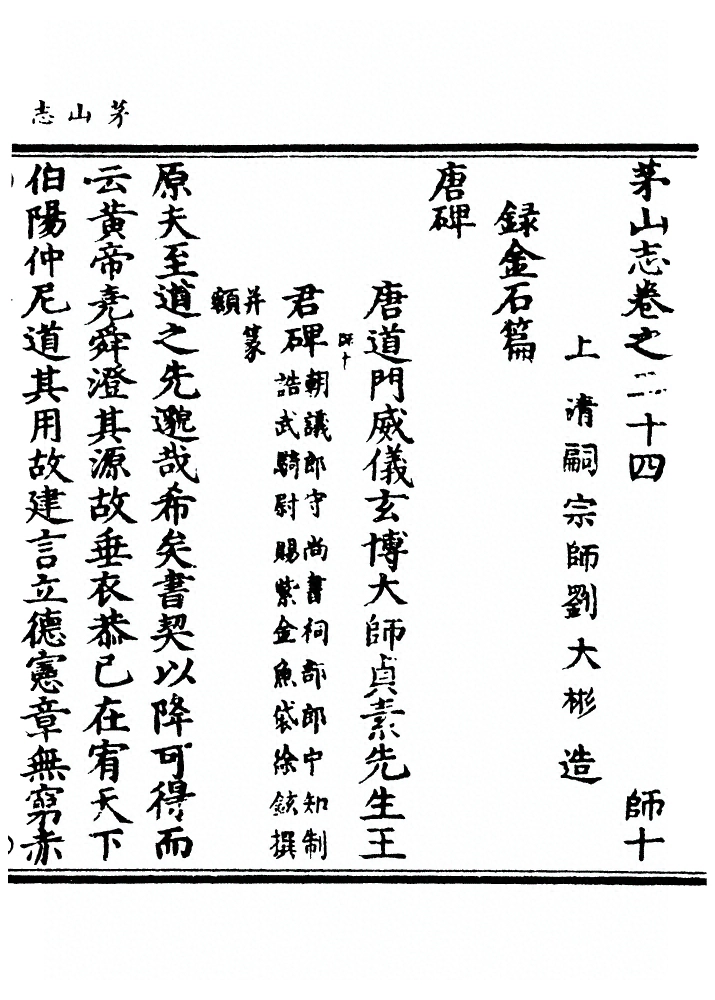 茅山志
茅山志卷之二十四
師十
上清嗣宗師劉大彬造
錄金石篇
唐碑
唐道門威儀玄博大師貞素先生王
師十
君碑朝議郎守尚書祠部郎中知制
誥武騎尉賜紫金魚袋徐鉉撰
并篆
額
原夫至道之先邈哉希矣書契以降可得而
云黃帝堯舜澄其源故垂衣恭已在宥天下
伯陽仲尼道其用故建言立德憲章無窮赤